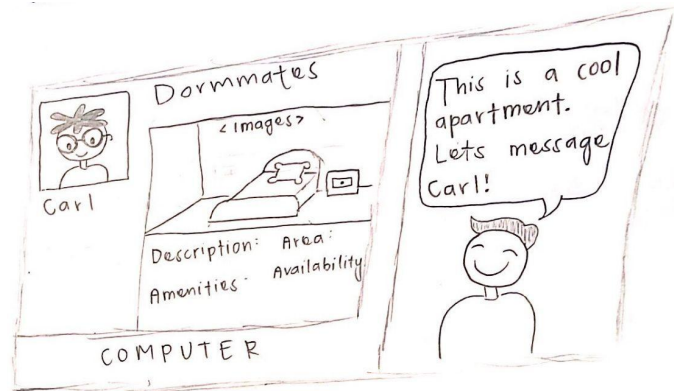 Dormmates
<Images>
Carl
Description: Area:
Amenities: Availability:
COMPUTER
This is a cool
apartment.
Lets message
Carl!